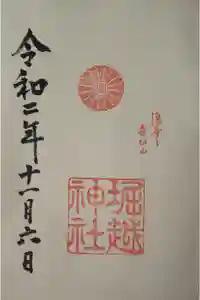 堀越
神社
令和二年十一月六日